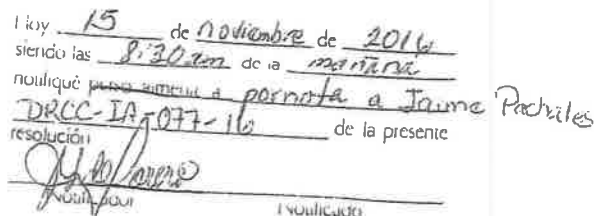 Hoy 15 de noviembre de 2016
siendo las 8:30 am de la mañana
notifiqué por nota a Jaime
DRCC-IA-077-16 de la presente
resolución
Notificador Notificado